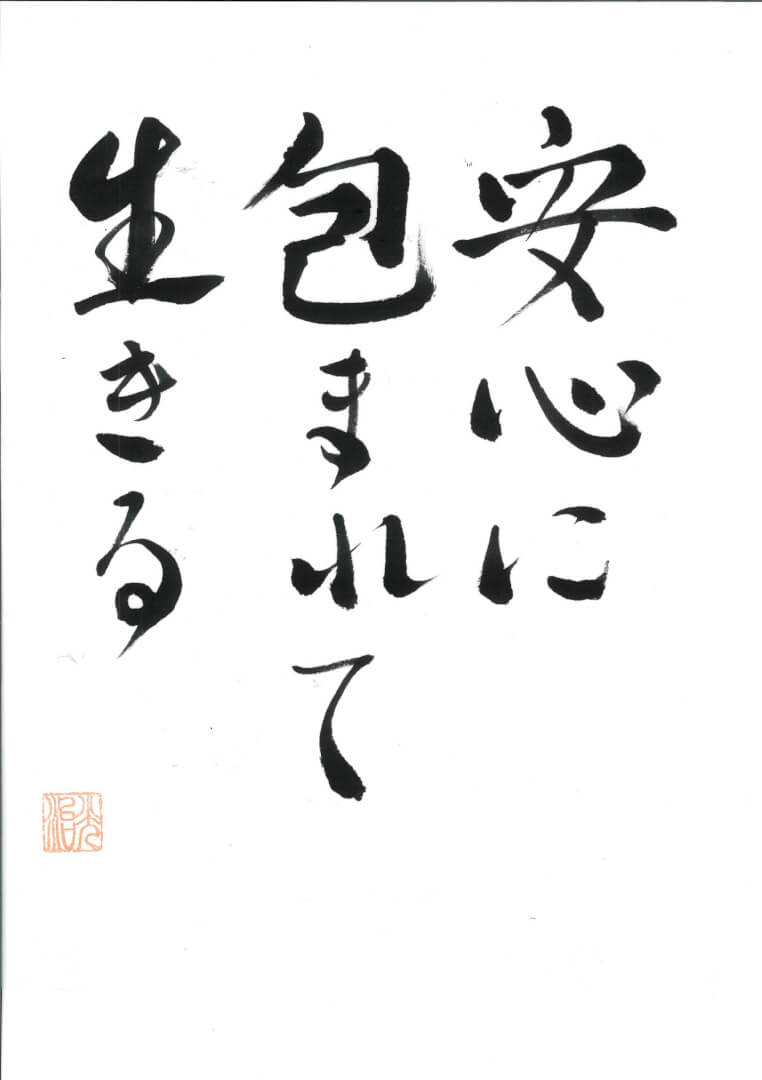 安心に
包まれて
生きる